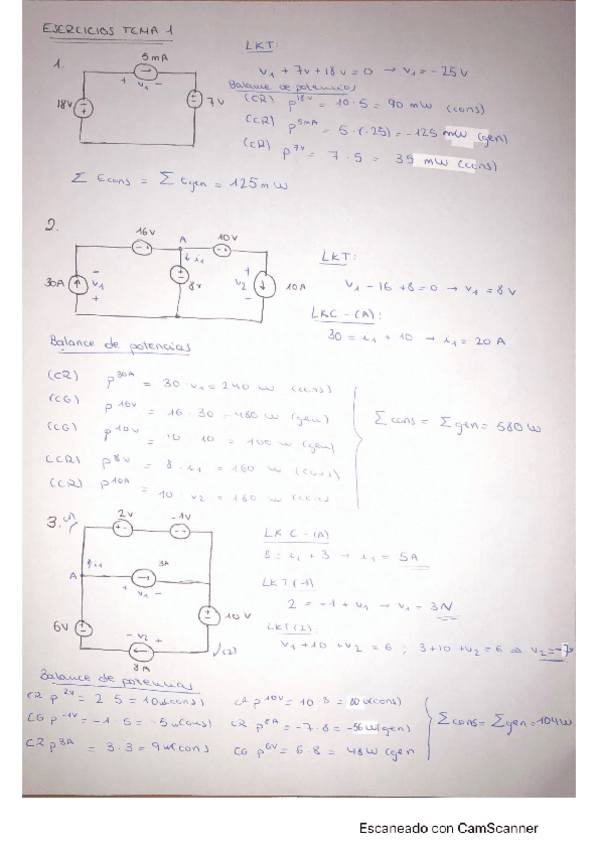 EJERCICIOS TEMA 1
LKT:
1.
5mA
+ V₁ -
18V
7V
V₁ + 7V + 18V = 0 → V₁ = -25V
Balance de potencias
(CR) p^18V = 10·5 = 90 mW (cons)
(CR) p^5mA = 5·(-25) = -125 mW (gen)
(CR) p^7V = 7·5 = 35 mW (cons)
Σ Econs = Σ Egen = 125mW
2.
16V
A
10V
30A
V₁
↓ i₁
8V
V₂
10A
LKT:
V₁ - 16 + 8 = 0 → V₁ = 8V
LKC - (A):
30 = i₁ + 10 → i₁ = 20 A
Balance de potencias
(CR) p^30A = 30·V₁ = 240 W (cons)
(CG) p^16V = 16·30 = 480 W (gen)
(CG) p^10V = 10·10 = 100 W (gen)
(CR) p^8V = 8·i₁ = 160 W (cons)
(CR) p^10A = 10·V₂ = 180 W (cons)
Σcons = Σgen = 580W
3.
2V
-1V
LKC - (A)
8 = i₁ + 3 → i₁ = 5A
A
3A
+ V₁ -
LKT(1)
2 = -1 + V₁ → V₁ = 3V
10V
6V
- V₂ +
8A
(2)
LKT(2):
V₁ + 10 + V₂ = 6 ; 3 + 10 + V₂ = 6 ⇒ V₂ = -7V
Balance de potencias
CR p^2V = 2·5 = 10W(cons)
CR p^10V = 10·8 = 80W(cons)
CG p^-1V = -1·5 = -5W(cons)
CR p^8A = -7·8 = -56W(gen)
CR p^3A = 3·3 = 9W(cons)
CG p^6V = 6·8 = 48W(gen
Σcons = Σgen = 104W
Escaneado con CamScanner